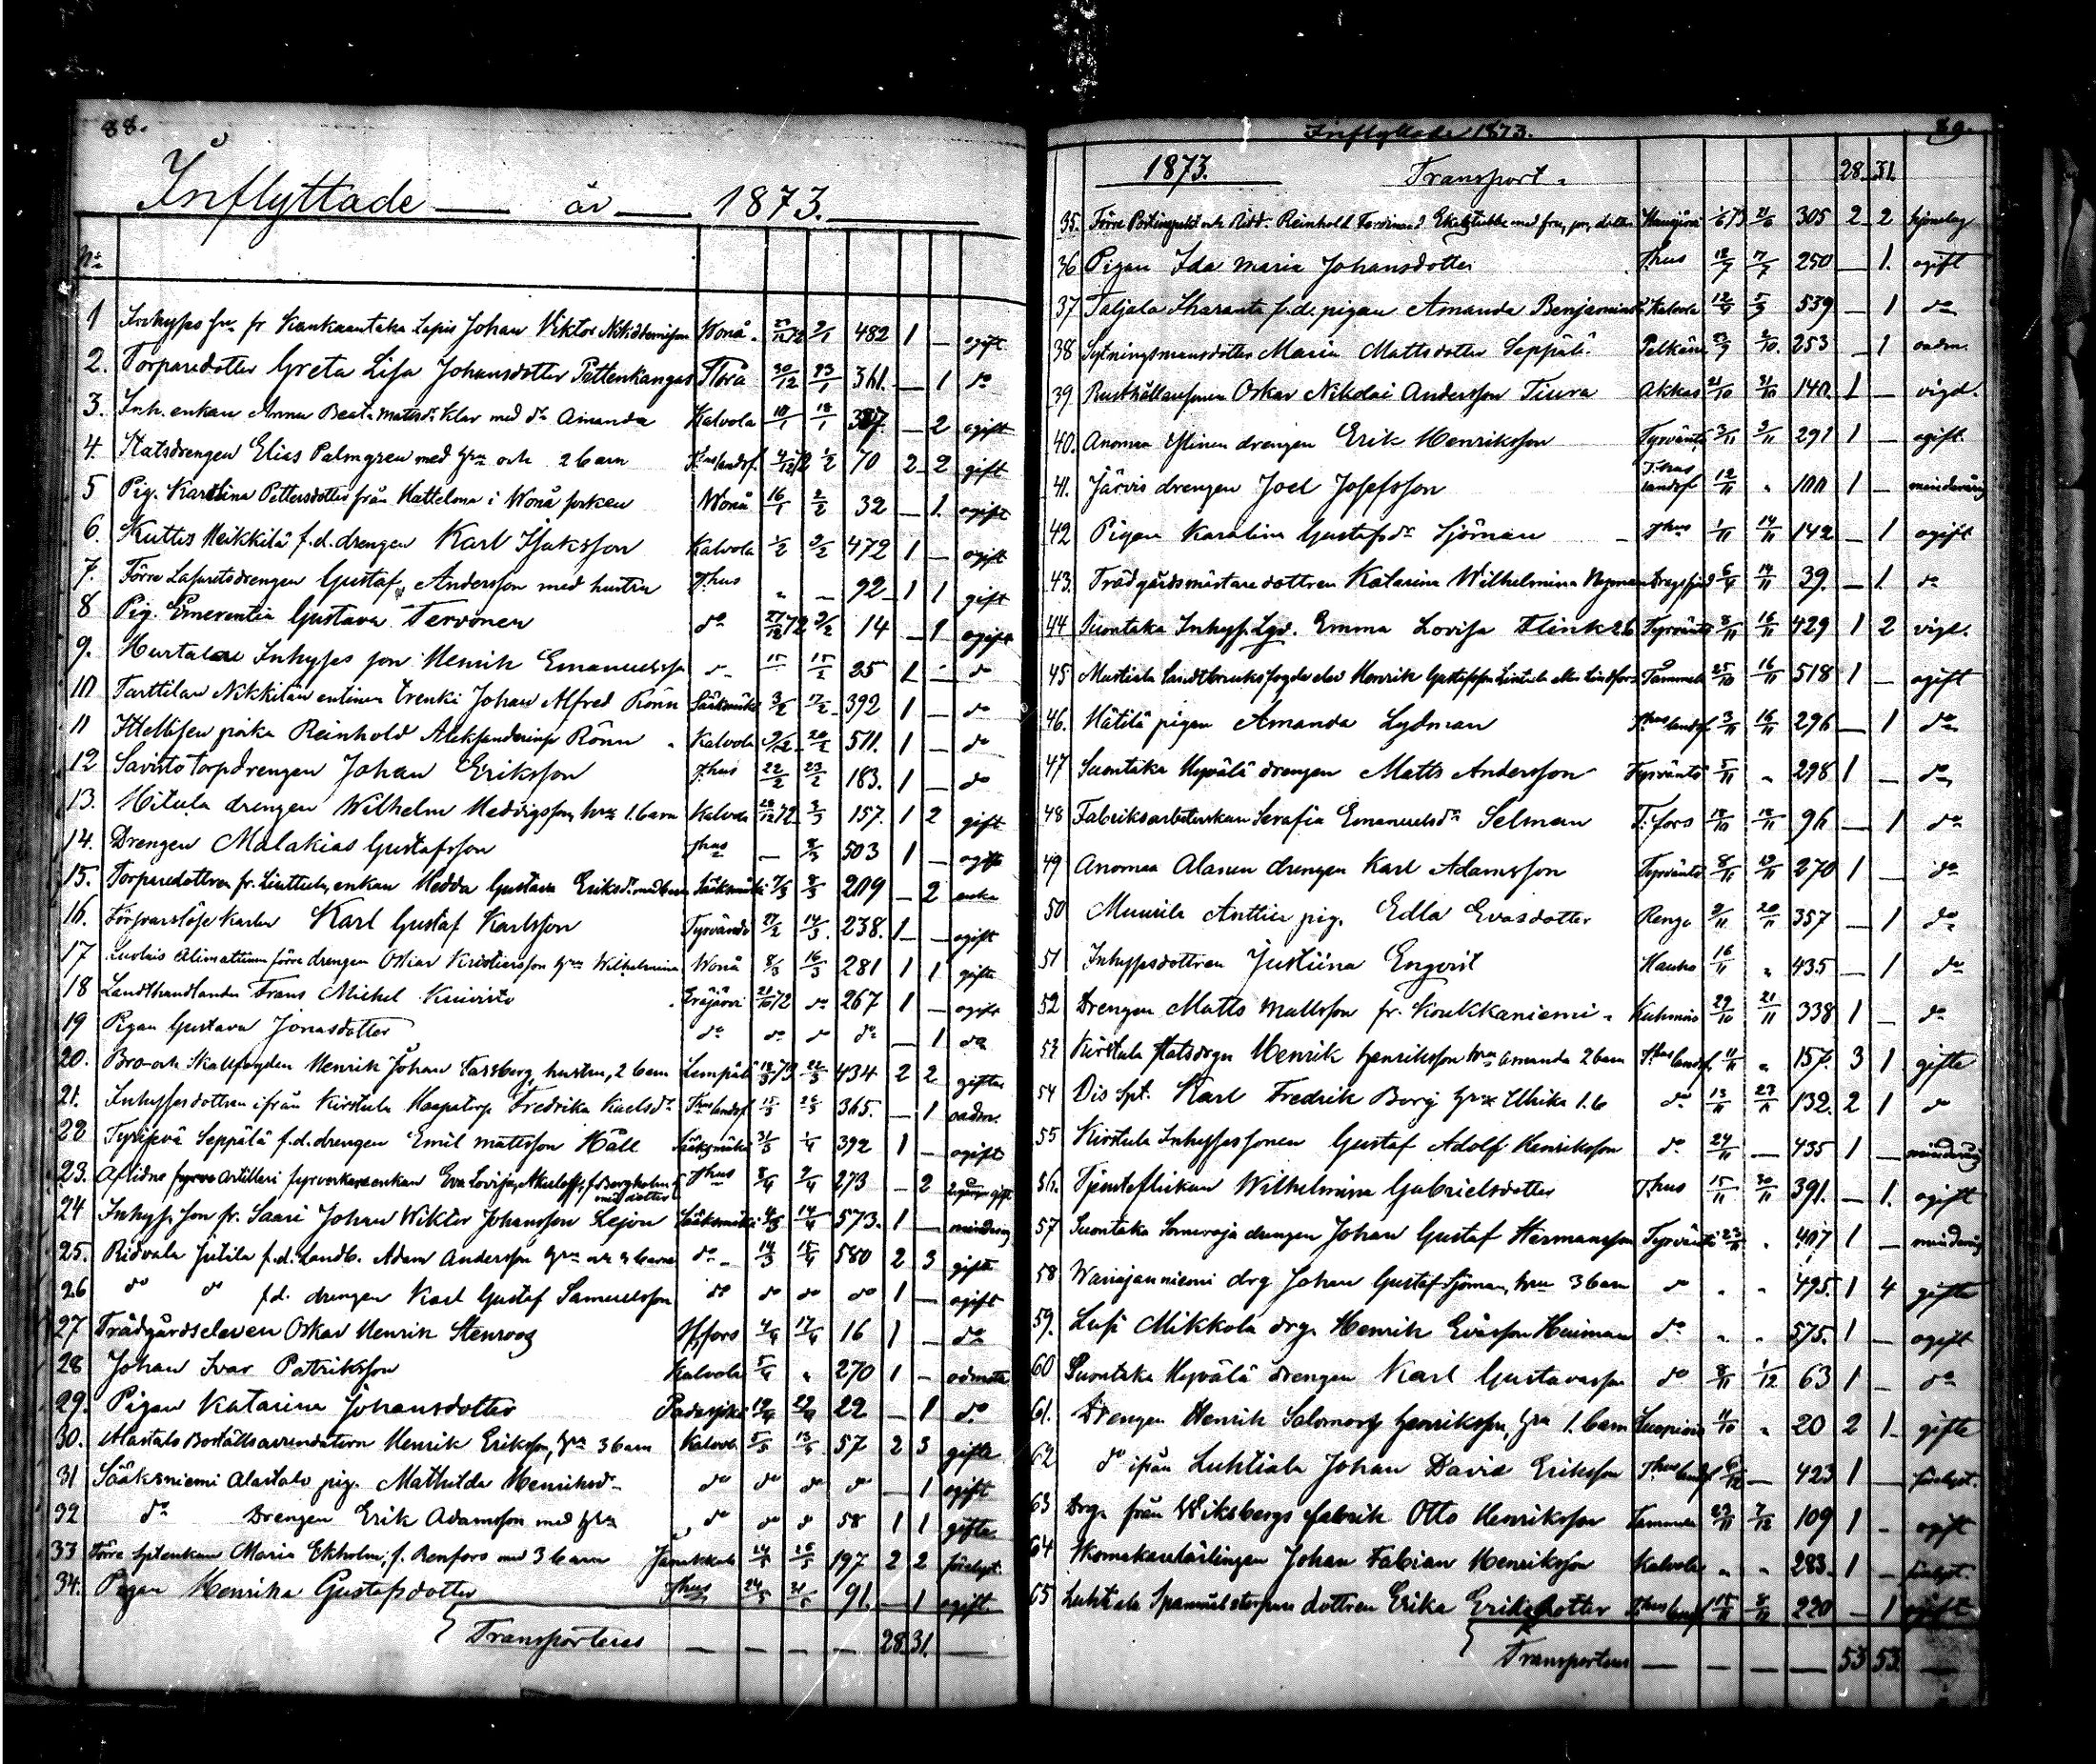 88.
Inflyttade år 1873.
No
1 Inhyses son fr Kankaantaka Lapis Johan Viktor Wånå 27/12 72 2/1 482 1 — ogift
2. Torparedotter Greta Lisa Johansdotter Pettenkangas Flora 30/12 23/1 361. — 1 do
3. Inh. enkan Anna Beata Mattsdr Klar med dr Amanda Kalvola 18/1 18/1 — 2 ogift
4. Statsdrengen Elias Palmgren med hru och 2 barn T.hus landsf. 4/12 72 1/2 70 2 2 gift
5 Pig. Karolina Pettersdotter från Hattelma i Wånå socken Wånå 16/1 2/2 32 — 1. ogift
6. Kuttis Heikkilä f.d. drengen Karl Isaksson Kalvola 1/2 9/2 472 1 — ogift
7. Förre Lasaretsdrengen Gustaf Andersson med hustru T.hus „ — 92 1 1 gift
8 Pig. Emerentia Gustava Tervonen do 27/12 72 9/2 14 — 1 ogift
9. Inhyses son Henrik Emanuelsson do 15 15/2 25 1 — do
10 Tarttilan Nikkilän entinen trenki Johan Alfred Rönn Sääksmäki 3/2 17/2 392 1 — do
11 poika Reinhold Rönn Kalvola 20/2 511. 1 — do
12 Savisto torpdrengen Johan Eriksson T.hus 22/2 23/2 183. 1 — do
13. Hitula drengen Wilhelm Hedvigsson, hru 1. barn Kalvola 28/12 72 2/3 157. 1 2 gift
14. Drengen Malakias Gustafsson T.hus — 8/3 503 1 — ogift
15. Torparedottren fr. enkan Hedda Gustava Eriksdr Sääksmäki 7/3 8/3 209 — 2 enka
16. Försvarslöse karlen Karl Gustaf Karlsson Tyrvändö 27/2 14/3. 238. 1 — ogift
17 förre drengen Oskar Kristiansson hru Wilhelmina Wånå 8/3 16/3 281 1 1 gifte
18 Landthandlanden Frans Mikel Kuivisto Eräjärvi 21/10 72 do 267 1 — ogift
19 Pigan Gustava Jonasdotter do do do do — 1 do
20. Bro- och Skallfogden Henrik Johan Fassberg, hustru, 2 barn Lempälä 18/3 73 22/3 434 2 2 gifta
21. Inhysesdottren ifrån Kirstula Haapatorp Fredrika Karlsdr T.hus landsf. 15/3 26/3 365. — 1 oadm.
22 Seppälä f.d. drengen Emil Mattsson Häll Sääksmäki 31/3 1/4 392 1 — ogift
23. Aflidne Artilleri fyrverkareenkan Eva Lovisa f. Bergholm med dotter T.hus 8/4 9/4 273 — 2
24 Inhyses son fr. Saari Johan Wiktor Johansson Lejon Sääksmäki 4/3 14/4 573. 1 — minderårig
25. Ridvala Jutila f.d. Landb. Adam Andersson hru och 3 barn do 14/3 15/4 580 2 3 gifta
26 do do f.d. drengen Karl Gustaf Samuelsson do do do do 1 — ogift
27 Trädgårdseleven Oskar Henrik Stenroos H.fors 4/4 17/4 16 1 — do
28 Johan Ivar Patriksson Kalvola 5/4 „ 270 1 —
29. Pigan Katarina Johansdotter Padasjoki 19/4 29/4 22 — 1 do
30. Alastalo Boställsarrendatorn Henrik Eriksson, hru 3 barn Kalvola 5/5 13/5 57 2 3 gifte
31 Sääksniemi Alastalo pig. Mathilda Henriksdr do do do do — 1 ogift
32 do Drengen Erik Adamsson med hru do do do 58 1 1 gifta
33 Förre Sptenkan Maria Ekholm, f. Renfors med 3 barn Janakkala 14/5 25/5 197 2 2
34. Pigan Henrika Gustafsdotter T.hus 24/5 31/5 91. — 1 ogift
Transporteras — — — — 28. 31. —
Inflyttade 1873.
89.
1873. Transport. 28. 31.
35. Reinhold Ferdinand Ekelstubbe med fru, son, dotter Hausjärvi 1/6 73 21/6 305 2 2
36 Pigan Ida Maria Johansdotter T.hus 12/7 17/7 250 — 1. ogift
37 Taljala Skaranta f.d. pigan Amanda Kalvola 12/4 5/9 539 — 1 do
38 Sytningsmansdotter Maria Mattsdotter Seppälä Pelkäne 23/9 2/10. 253 — 1 oadm.
39 Rusthållaresonen Oskar Nikolai Andersson Tiura Akkas 21/10 31/10 140. 1 — vigd.
40. Anomaa drengen Erik Henriksson Tyrväntö 3/11 9/11 291 1 — ogift.
41. Järvis drengen Joel Josefsson T.hus landsf 12/11 „ 100 1 — minderårig
42 Pigan Karolina Gustafsdr Sjöman — T.hus 1/11 14/11 142 — 1 ogift
43. Trädgårdsmästare dottren Katarina Wilhelmina Nyman 6/11 14/11 39. — 1. do
44 Suontaka Inhyses Emma Lovisa Flink 2 b Tyrväntö 3/11 16/11 429 1 2 vigd.
45 Mustiala Landtbruksfogde elev Henrik Gustafsson Lintula eller Lindfors Tammela 25/10 16/11 518 1 — ogift
46. Hätilä pigan Amanda Lydman T.hus landsf 3/11 16/11 296 — 1 do
47 Suontaka Hyvälä drengen Matts Andersson Tyrväntö 5/11 „ 298 1 — do
48 Fabriksarbeterskan Serafia Emanuelsdr Selman T.fors 18/10 18/11 96 — 1 do
49 Anomaa Alanen drengen Karl Adamsson Tyrväntö 8/11 19/11 270 1 — do
50 Muurila Anttila pig. Edla Evasdotter Renge 9/11 20/11 357 — 1 do
51 Inhysesdottren Justiina Enqvist Hauho 16/11 „ 435 — 1 do
52 Drengen Matts Mattsson fr. Koukkaniemi Kuhmois 29/10 21/11 338 1 — do
53 Kirstula statsdrgn Henrik Henriksson hru Amanda 2 barn T.hus landsf. 11/11 „ 157. 3 1 gifte
54 Dis Spt. Karl Fredrik Borg hru Ulrika 1. b do 13/11 23/11 132. 2 1 do
55 Kirstula Inhysessonen Gustaf Adolf Henriksson do 24/11 — 435 1 — minderårig
56. Tjensteflickan Wilhelmina Gabrielsdotter T.hus 15/11 30/11 391. — 1. ogift
57 Suontaka drengen Johan Gustaf Hermansson Tyrväntö 23/11 „ 407 1 — minderårig
58 drg Johan Gustaf Sjöman, hru 3 barn do „ „ 495. 1 4 gifte
59. Lusi Mikkola drg. Henrik Evasson Huiman do „ „ 575. 1 — ogift
60 Suontaka Hyvälä drengen Karl Gustavsson do 8/11 1/12 63 1 — do
61. Drengen Henrik Salomon Henriksson, hru 1. barn Kuopio 11/10 „ 20 2 1 gifte
62 do ifrån Luhtiala Johan David Eriksson T.hus landsf 6/12 — 423 1 —
63 Drg. från Wiksbergs fabrik Otto Henriksson Tammela 23/11 7/12 109 1 — ogift
64 Skomakarelärlingen Johan Fabian Henriksson Kalvola „ „ 283. 1 —
65 Luhtiala dottren Erika Eriksdotter T.hus landsf 15/11 8/12 220 — 1 ogift
Transporteras — — — — 53 53. —